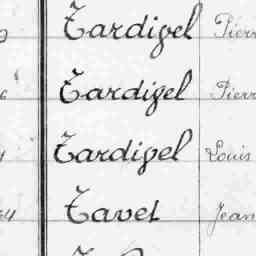 Tardivel Pierr
Tardivel Pierr
Tardivel Louis
Tavet Jean